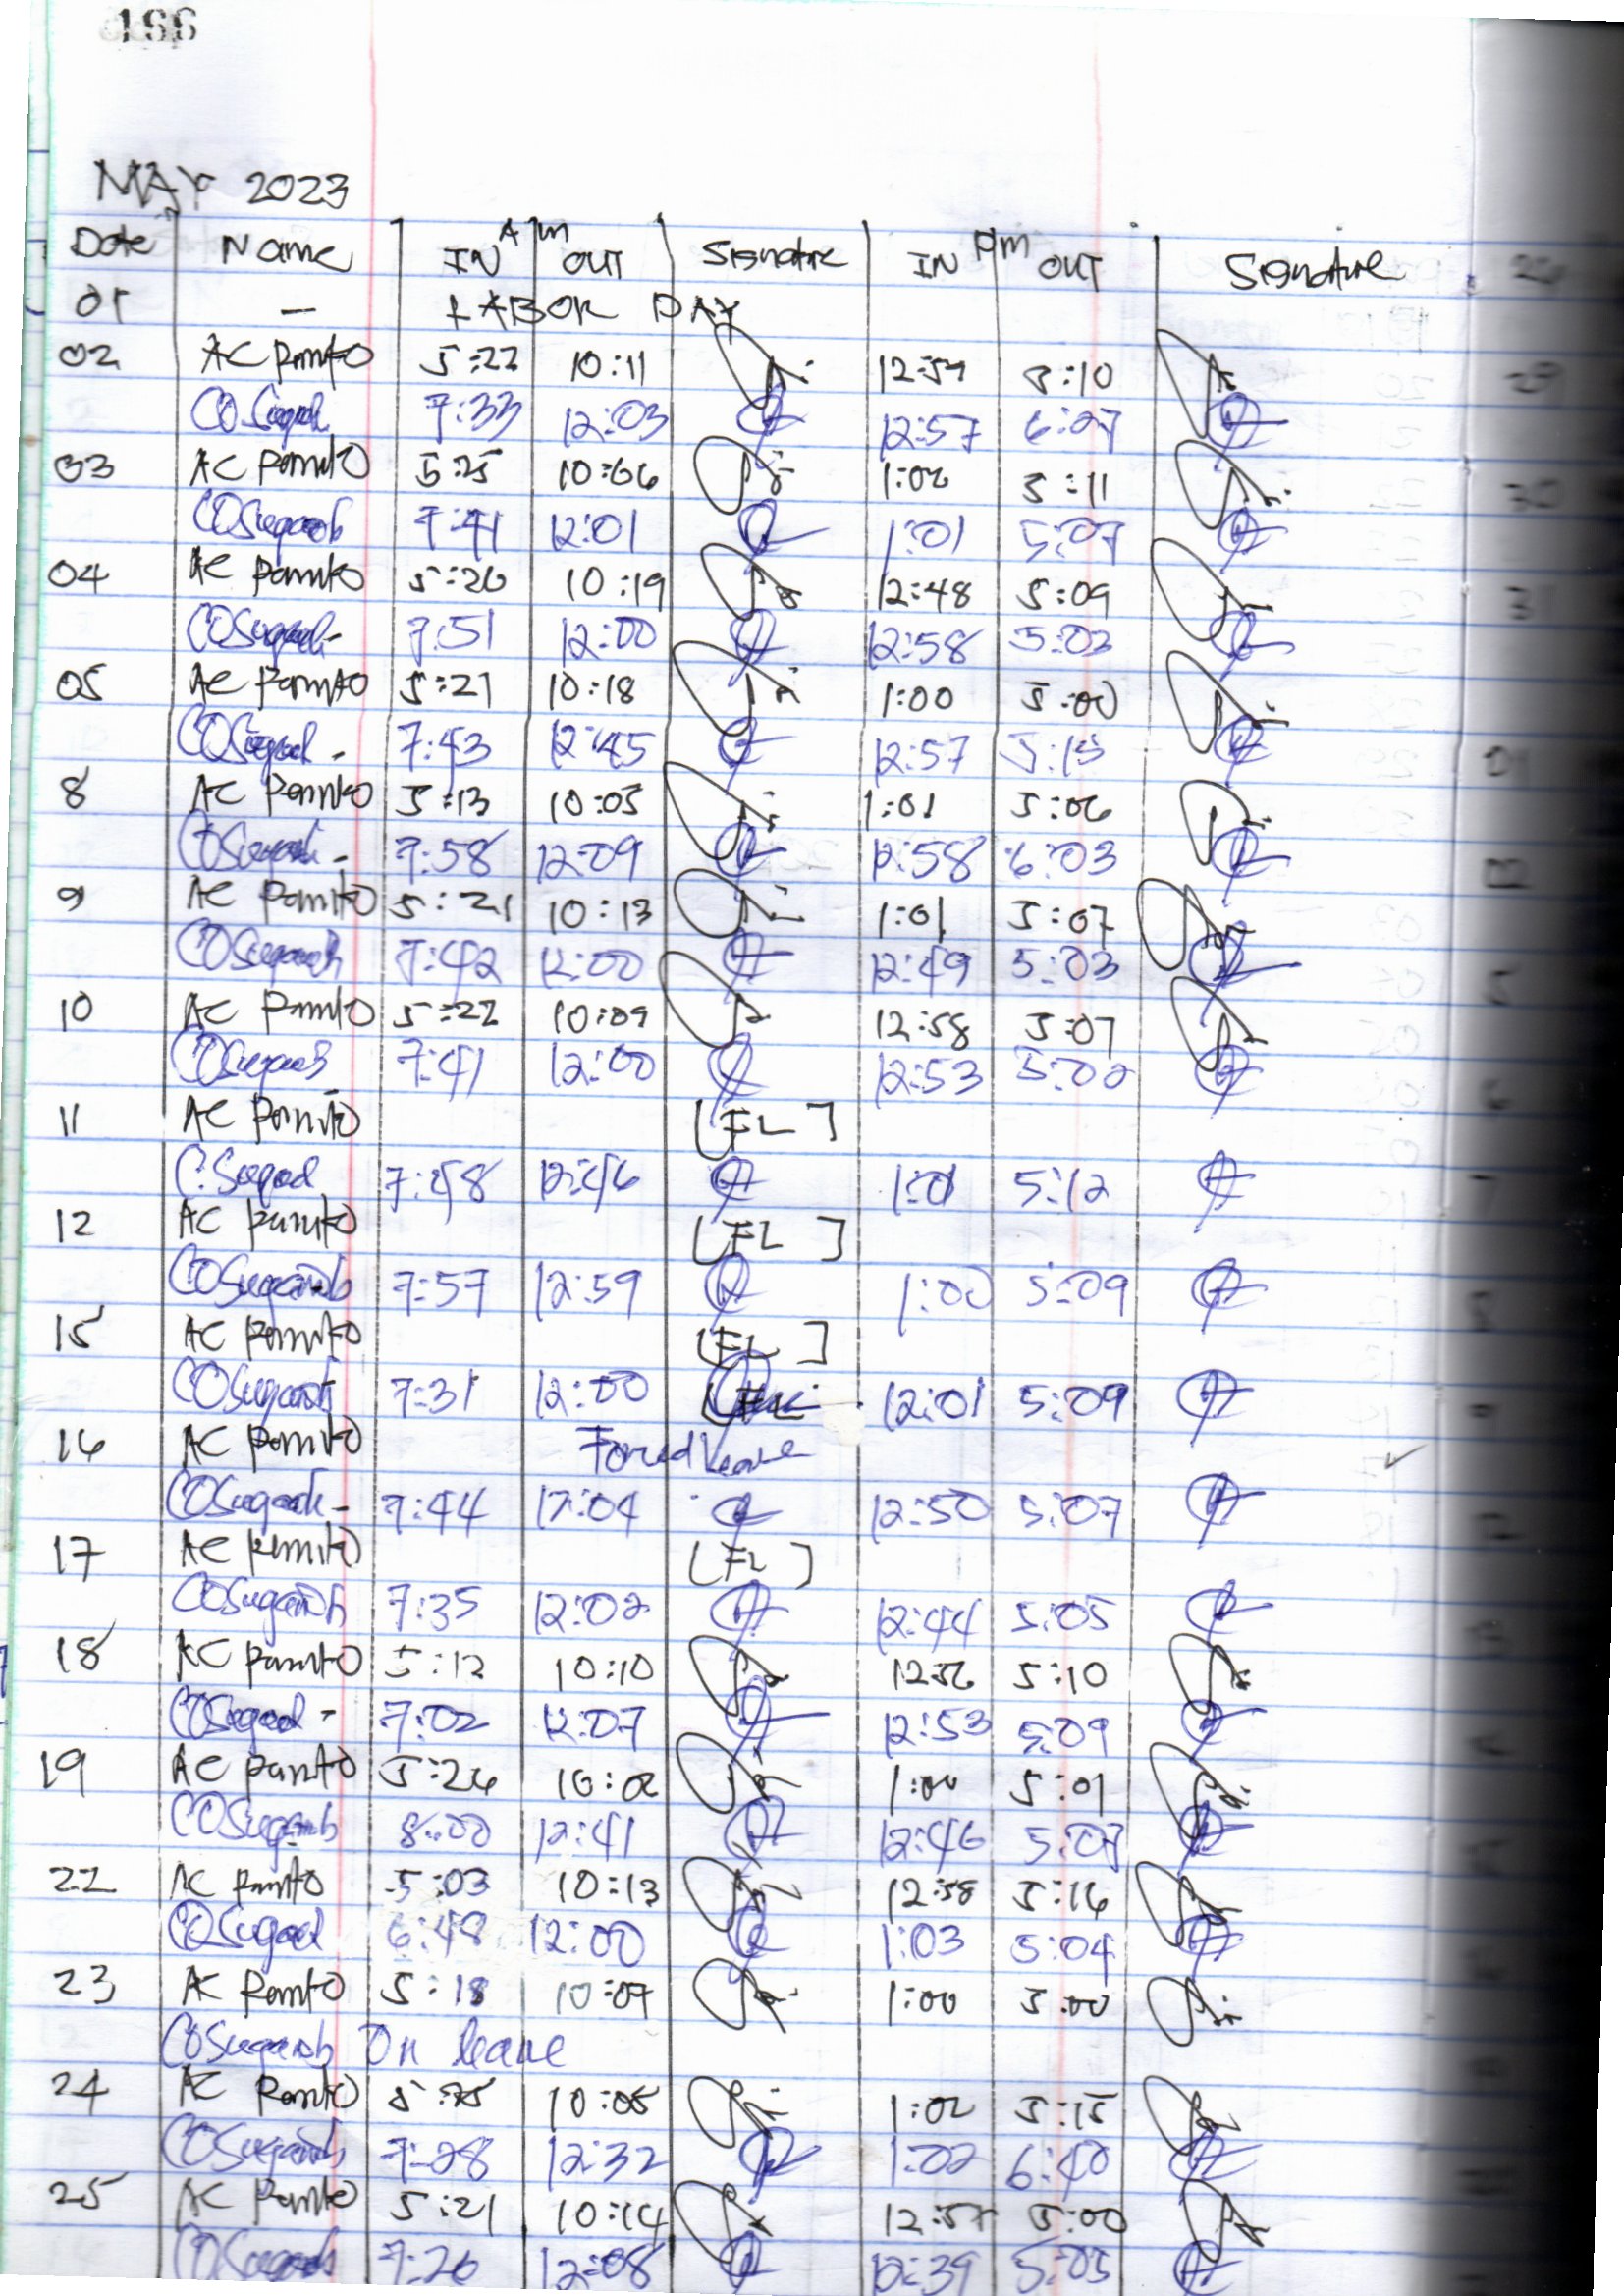 166
MAY 2023
Date Name IN AM OUT Signature IN PM OUT Signature
01 — LABOR DAY
02 AC Pamito 5:22 10:11 12:59 5:10
COSugarol 7:33 12:03 12:57 6:27
03 AC Pamito 5:25 10:06 1:02 5:11
COSugarol 7:41 12:01 1:01 5:07
04 AC Pamito 5:20 10:19 12:48 5:09
COSugarol 7:51 12:00 12:58 5:03
05 AC Pamito 5:21 10:18 1:00 5:00
COSugarol 7:43 12:45 12:57 5:15
8 AC Pamito 5:13 10:05 1:01 5:06
COSugarol 7:58 12:09 12:58 6:03
9 AC Pamito 5:21 10:13 1:01 5:07
COSugarol 7:42 12:00 12:49 5:03
10 AC Pamito 5:22 10:09 12:58 5:07
COSugarol 7:41 12:00 12:53 5:02
11 AC Pamito [FL]
C.Sugarol 7:48 12:46 1:01 5:12
12 AC Pamito [FL]
COSugarol 7:57 12:59 1:00 5:09
15 AC Pamito [FL]
COSugarol 7:31 12:00 12:01 5:09
16 AC Pamito Forced Leave
COSugarol 7:44 12:04 12:50 5:07
17 AC Pamito [FL]
COSugarol 7:35 12:02 12:44 5:05
18 AC Pamito 5:12 10:10 12:56 5:10
COSugarol 7:02 12:07 12:53 5:09
19 AC Pamito 5:26 10:02 1:00 5:01
COSugarol 8:00 12:41 12:46 5:07
22 AC Pamito 5:03 10:13 12:58 5:16
COSugarol 6:48 12:00 1:03 5:04
23 AC Pamito 5:18 10:07 1:00 5:00
COSugarol On leave
24 AC Pamito 10:05 1:02 5:15
COSugarol 7:28 12:32 1:02 6:40
25 AC Pamito 5:21 10:14 12:57 5:00
COSugarol 7:26 12:08 12:39 5:05